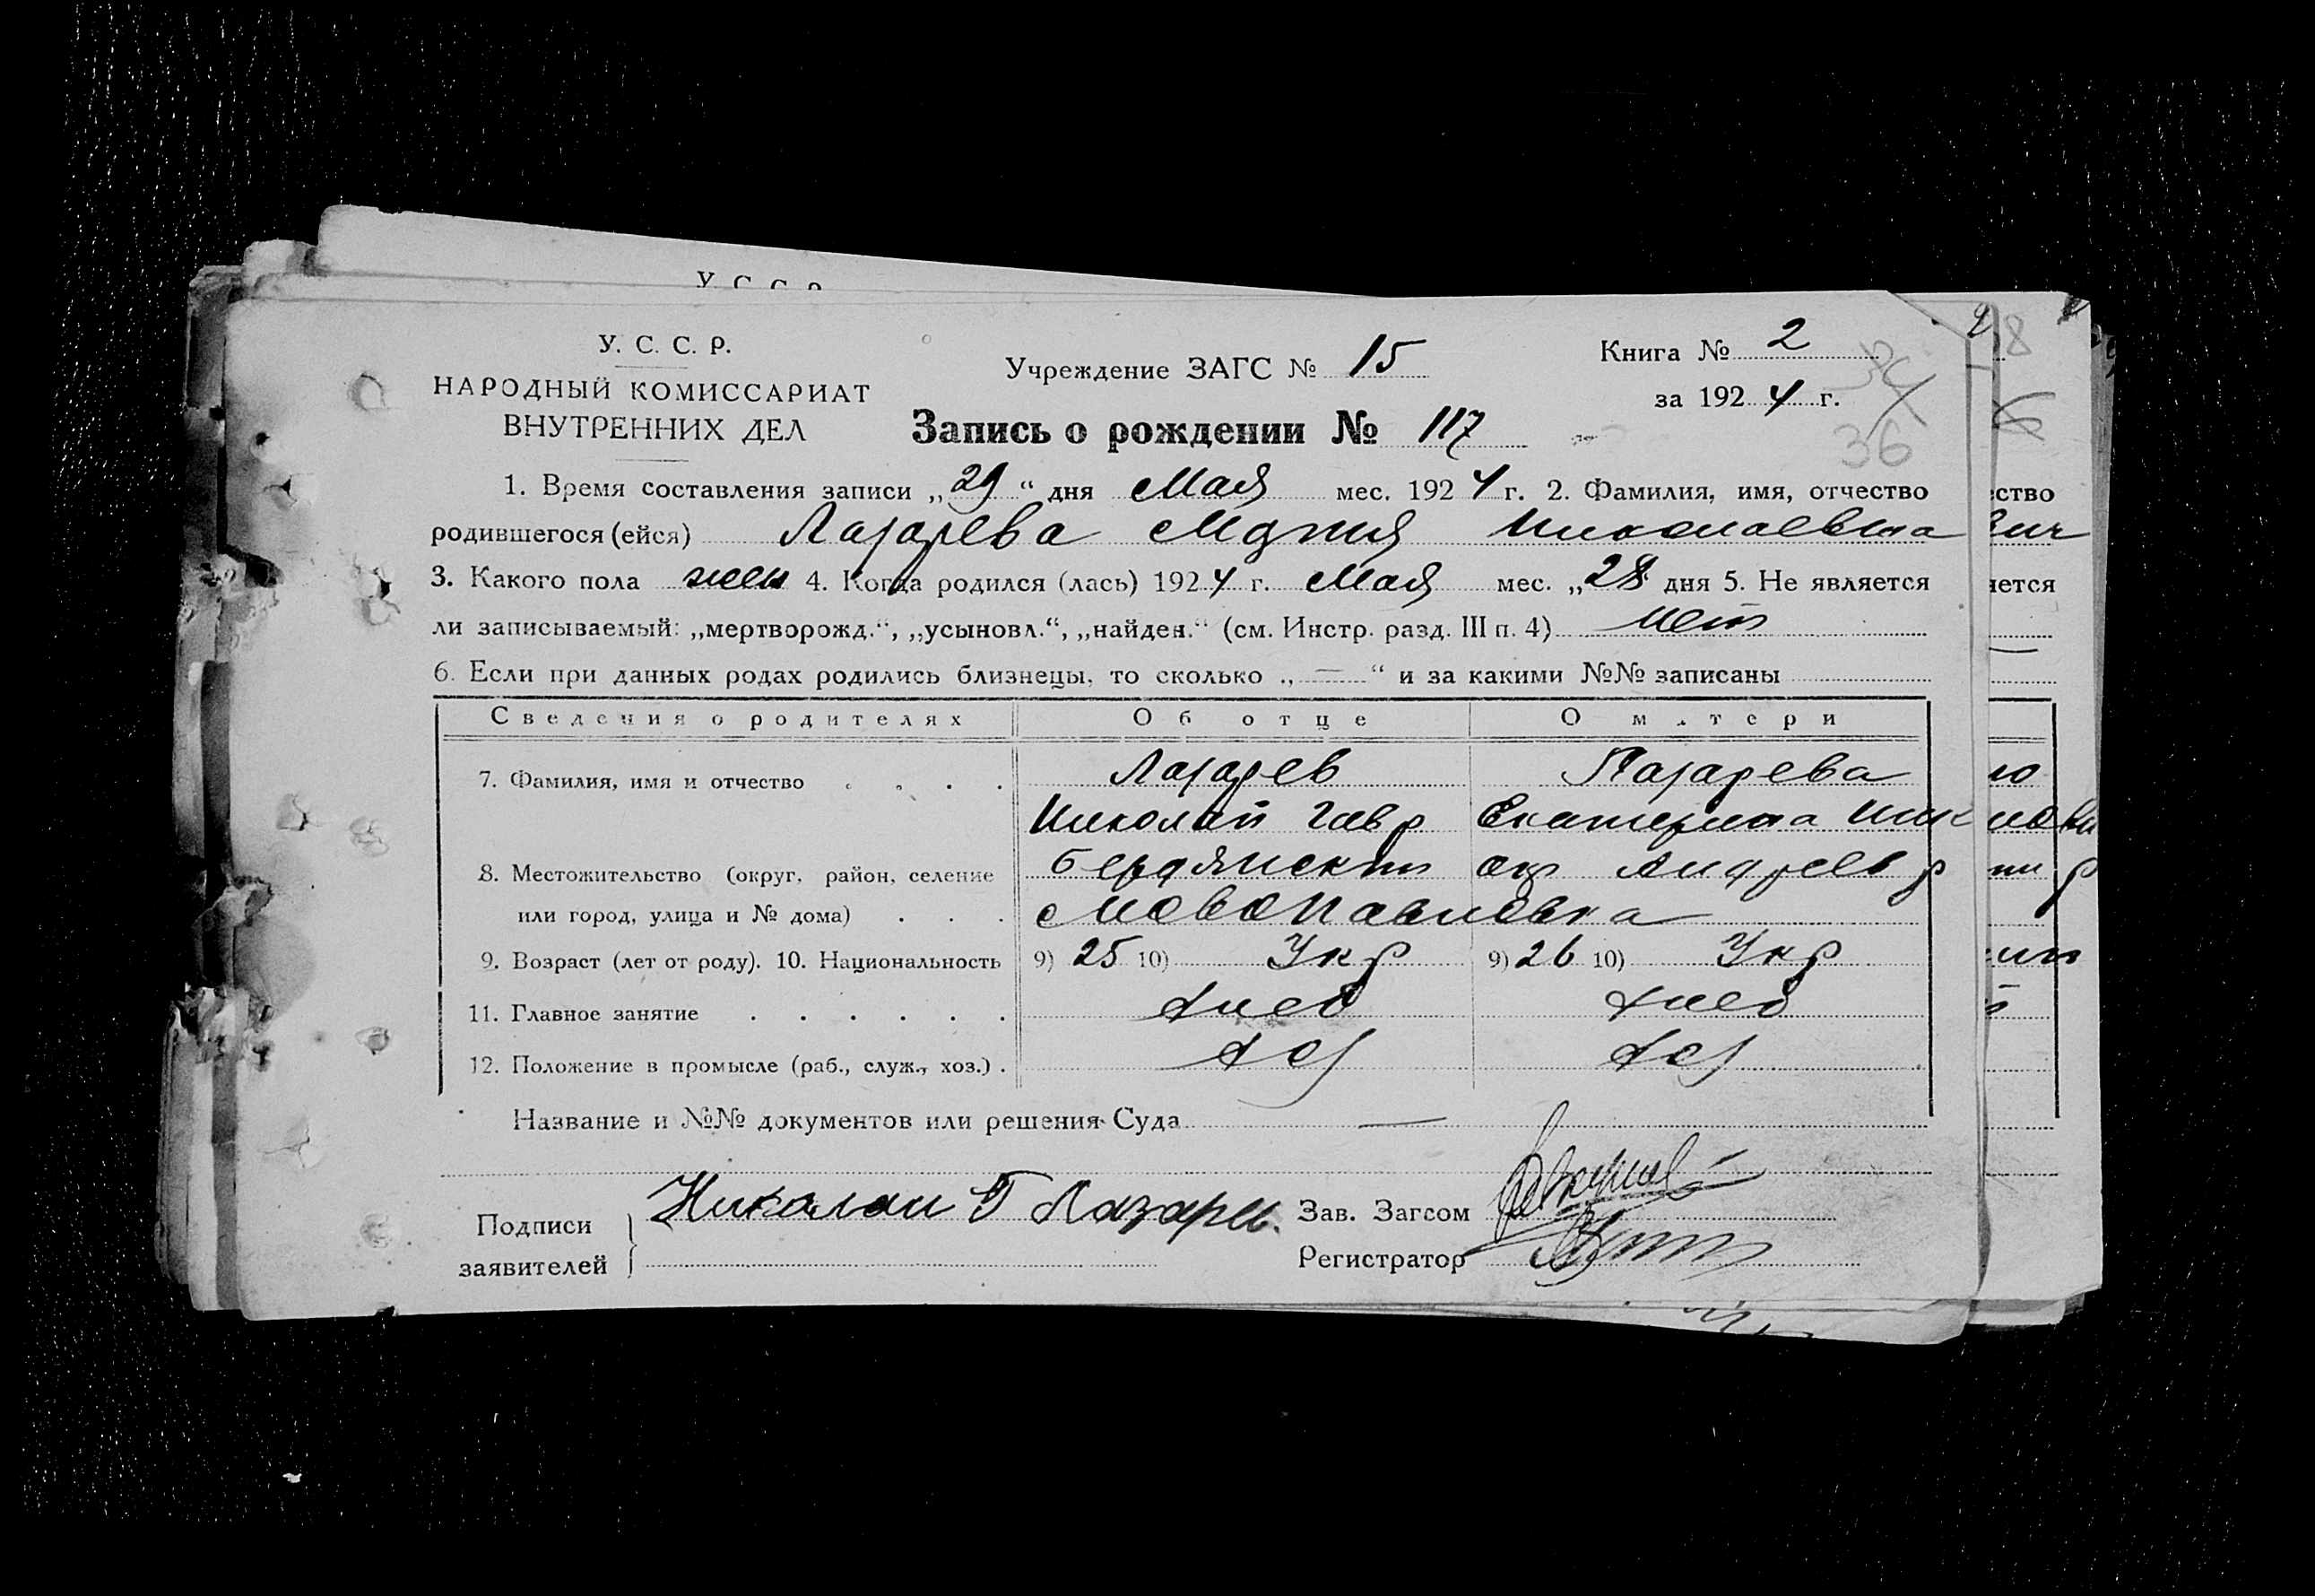 У С С Р
У. С. С. Р.
НАРОДНЫЙ КОМИССАРИАТ
ВНУТРЕННИХ ДЕЛ
Учреждение ЗАГС № 15
Книга № 2
за 1924 г.
36
Запись о рождении № 117
1. Время составления записи „29“ дня Мая мес. 1924 г. 2. Фамилия, имя, отчество
родившегося (ейся) Лазарева Мария Николаевна
3. Какого пола жен 4. Когда родился (лась) 1924 г. Мая мес. „28 дня 5. Не является
ли записываемый: „мертворожд.“, „усыновл.“, „найден.“ (см. Инстр. разд. III п. 4) Нет
6. Если при данных родах родились близнецы, то сколько „—“ и за какими №№ записаны
Сведения о родителях Об отце О матери
7. Фамилия, имя и отчество . . . . Лазарев Лазарева
Николай Гавр Екатерина Ник
8. Местожительство (округ, район, селение Бердянский окр Андреев р
или город, улица и № дома) . . . с Новопавловка
9. Возраст (лет от роду). 10. Национальность 9) 25 10) Укр 9) 26 10) Укр
11. Главное занятие . . . . . . Хлеб Хлеб
12. Положение в промысле (раб., служ., хоз.) . Хоз Хоз
Название и №№ документов или решения Суда —
Подписи заявителей Николаи Г Лазарев.
Зав. Загсом
Регистратор